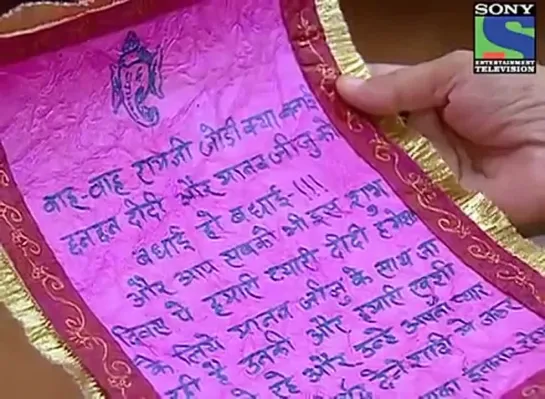 SONY
SET
ENTERTAINMENT
TELEVISION
वाह-वाह रामजी जोडी क्या बनाई
छनछन दीदी और मानव जीजु को
बधाई हो बधाई !!!!
और आप सबको भी इस शुभ
दिवस पे हमारी प्यारी दीदी हमेशा
के लिये मानव जीजु के साथ जा
रही है उनकी और हमारी खुशी
रहे और उन्हे अपना प्यार
देने शादि मे